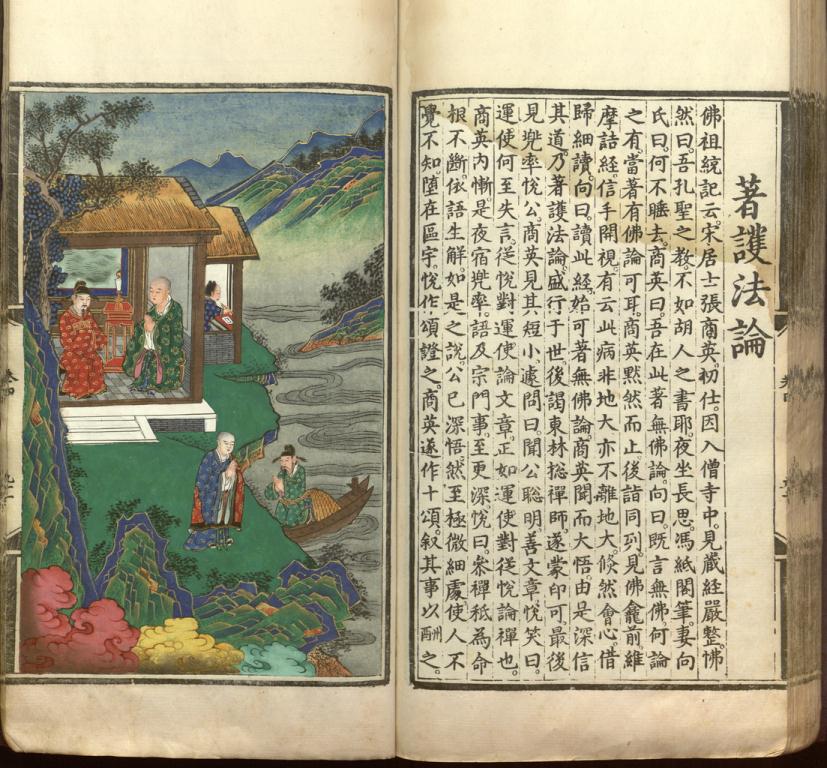 著護法論
佛祖統記云。宋居士張商英。初仕。因入僧寺中。見藏經嚴整。怫
然曰。吾孔聖之教。不如胡人之書耶。夜坐長思。馮紙閣筆。妻向
氏曰。何不睡去。商英曰。吾在此著無佛論。向曰。既言無佛。何論
之有。當著有佛論可耳。商英默然而止。後詣同列。見佛龕前。維
摩詰經。信手開視。有云此病非地大。亦不離地大。倏然會心。借
歸細讀。向曰。讀此經。始可著無佛論。商英聞而大悟。由是深信
其道。乃著護法論。盛行于世。後謁東林揔禪師。遂蒙印可。最後
見兜率悅公。商英見其短小。遽問曰。聞公聰明。善文章。悅笑曰。
運使何至失言。從悅對運使論文章。正如運使對從悅論禪也。
商英內慚。是夜宿兜率。語及宗門事。至更深。悅曰。參禪秪為命
根不斷。依語生解。如是之說。公已深悟。然至極微細處。使人不
覺不知。墮在區宇。悅作頌證之。商英遂作十頌。敘其事以酬之。